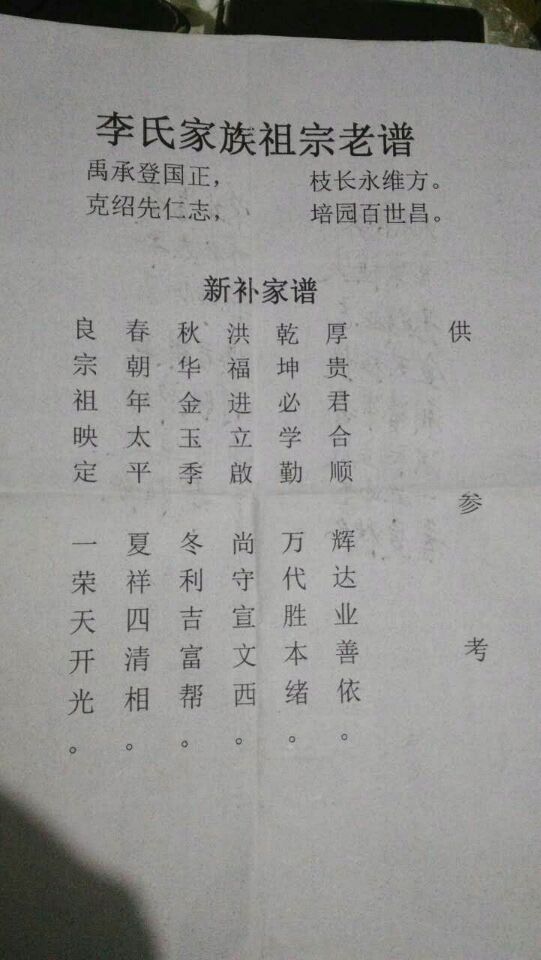 李氏家族祖宗老谱
禹承登国正， 枝长永维方。
克绍先仁志， 培园百世昌。
新补家谱
良宗祖映定 一荣天开光。
春朝年太平 夏祥四清相。
秋华金玉季 冬利吉富帮。
洪福进立啟 尚守宣文西。
乾坤必学勤 万代胜本绪。
厚贵君合顺 辉达业善依。
供参考